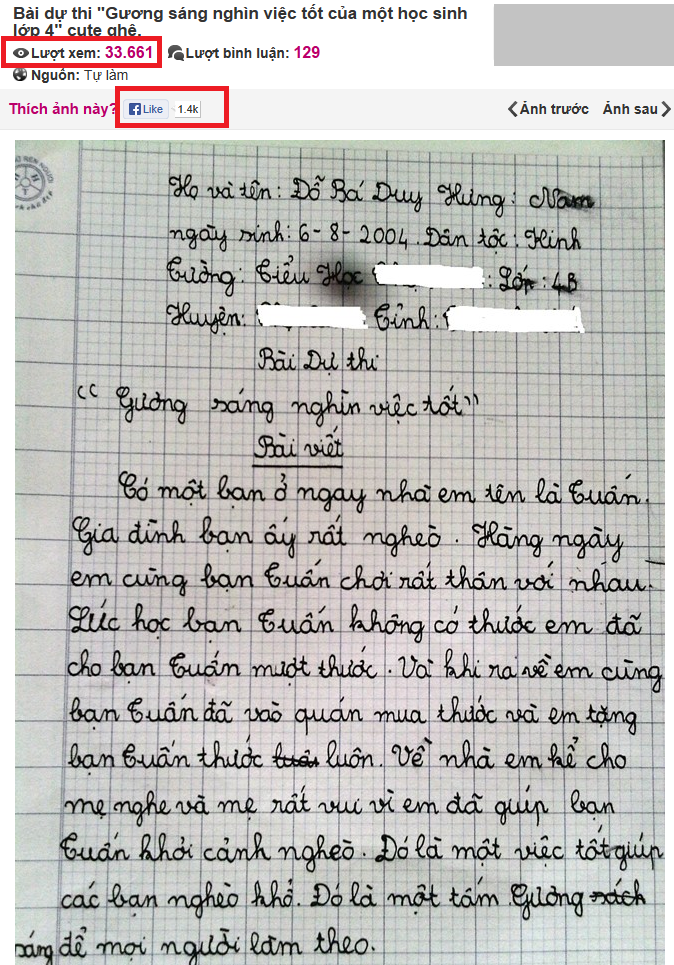 Bài dự thi "Gương sáng nghìn việc tốt của một học sinh
lớp 4" cute ghê.
Lượt xem: 33.661 Lượt bình luận: 129
Nguồn: Tự làm
Thích ảnh này? Like 1.4k Ảnh trước Ảnh sau
Họ và tên: Đỗ Bá Duy Hưng: Nam
ngày sinh: 6-8-2004. Dân tộc: Kinh
Tường: Tiểu Học : Lớp: 4B
Huyện: Tỉnh:
Bài Dự thi
"Gương sáng nghìn việc tốt"
Bài viết
Có một bạn ở ngay nhà em tên là Tuấn.
Gia đình bạn ấy rất nghèo. Hàng ngày
em cùng bạn Tuấn chơi rất thân với nhau.
Lúc học bạn Tuấn không có thước em đã
cho bạn Tuấn mượt thước. Và khi ra về em cùng
bạn Tuấn đã vào quán mua thước và em tặng
bạn Tuấn thước luôn. Về nhà em kể cho
mẹ nghe và mẹ rất vui vì em đã giúp bạn
Tuấn khỏi cảnh nghèo. Đó là một việc tốt giúp
các bạn nghèo khổ. Đó là một tấm Gương sách
sáng để mọi người làm theo.